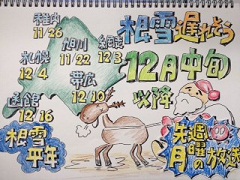 根雪遅れそう
12月中旬
以降
稚内
11/26
旭川
11/22
網走
12/3
札幌
12/4
帯広
12/10
函館
12/16
根雪
平年
来週
月曜の放送